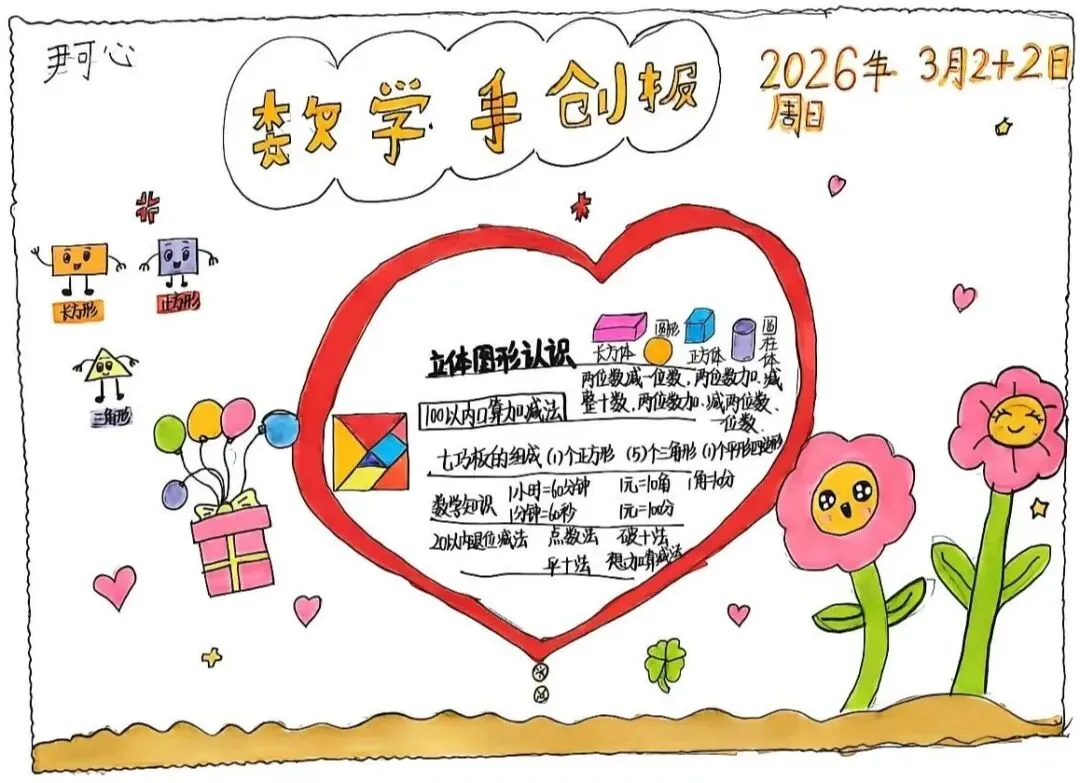 尹可心
数学手创报
2026年 3月2+2日
周日
长方形
正方形
三角形
立体图形认识
长方体
圆形
正方体
圆柱体
100以内口算加减法
两位数减一位数,两位数加、减
整十数,两位数加、减两位数、
一位数、
七巧板的组成 (1)个正方形 (5)个三角形 (1)个平行四边形
数学知识
1小时=60分钟 1元=10角 1角=10分
1分钟=60秒 1元=100分
20以内退位减法 点数法 破十法
平十法 想加算减法